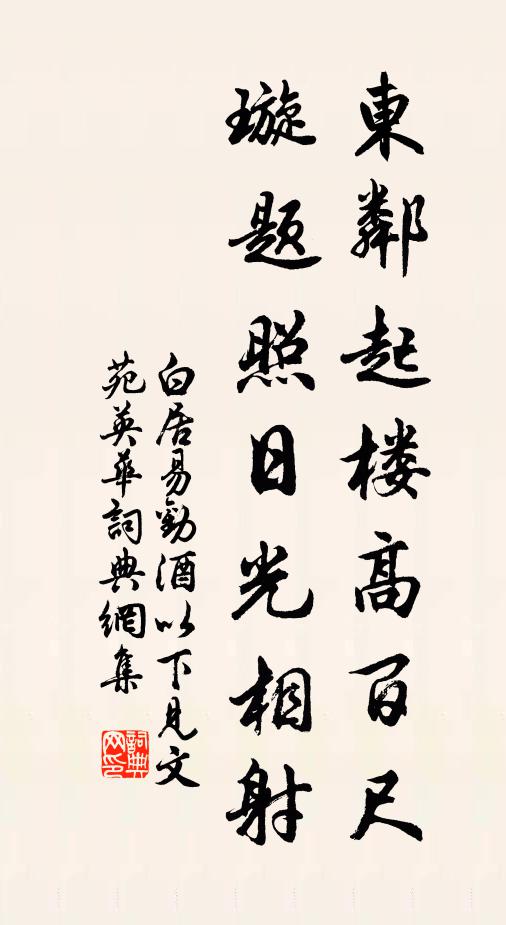 東鄰起楼高百尺
璇题照日光相射
白居易勸酒以下見文
苑英華詞典網集
詞典
网印